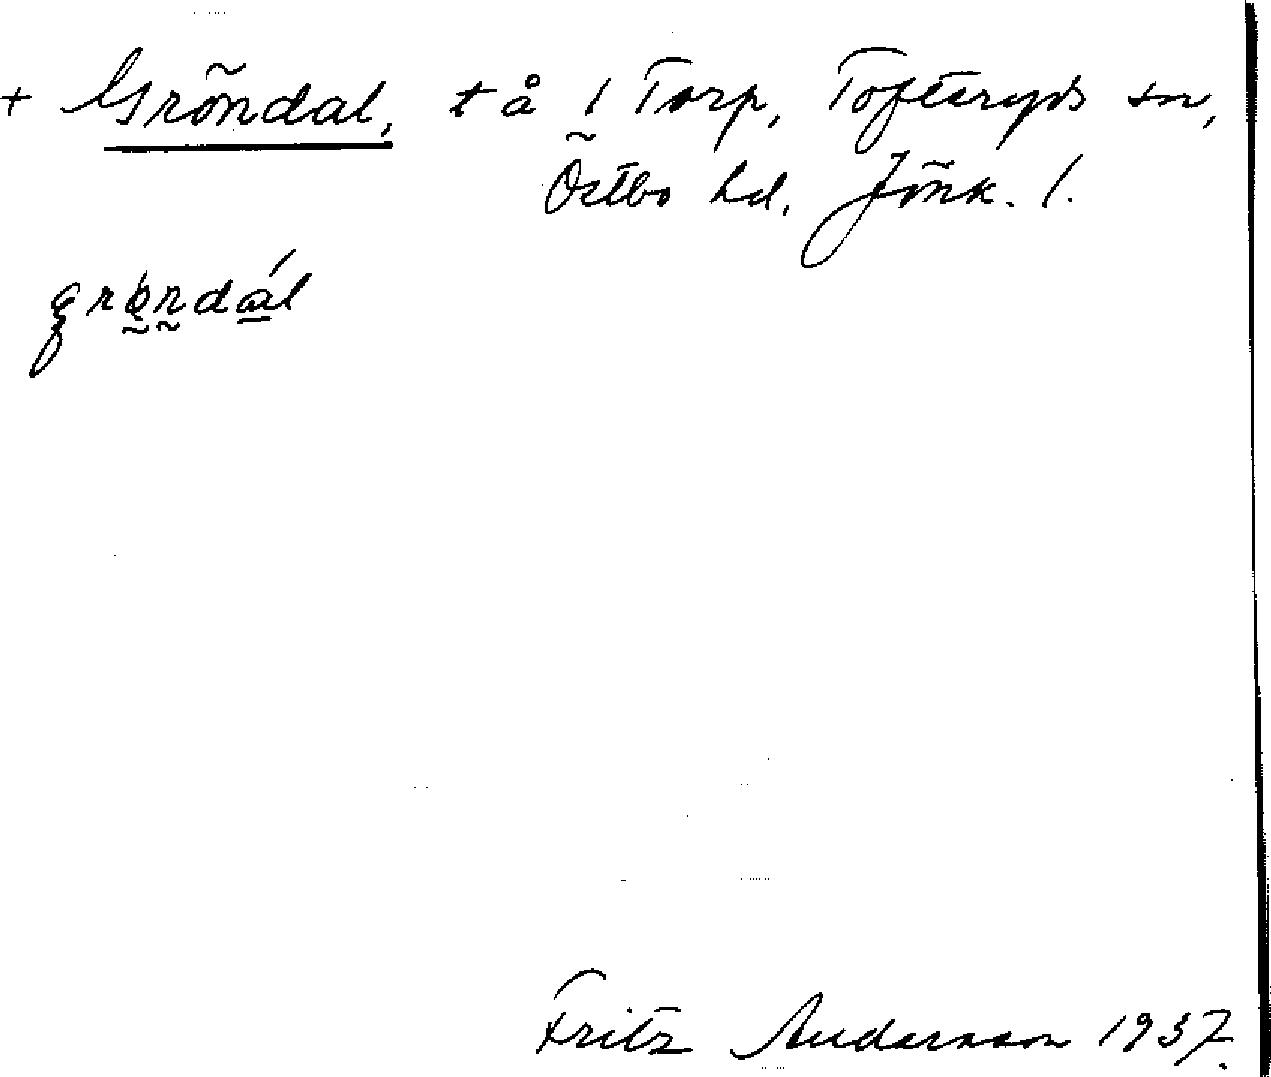 + Gröndal, t å 1 Torp, Tofteryds sn,
Östbo hd. Jönk. l.
grøndál
Fritz Andersson 1937.